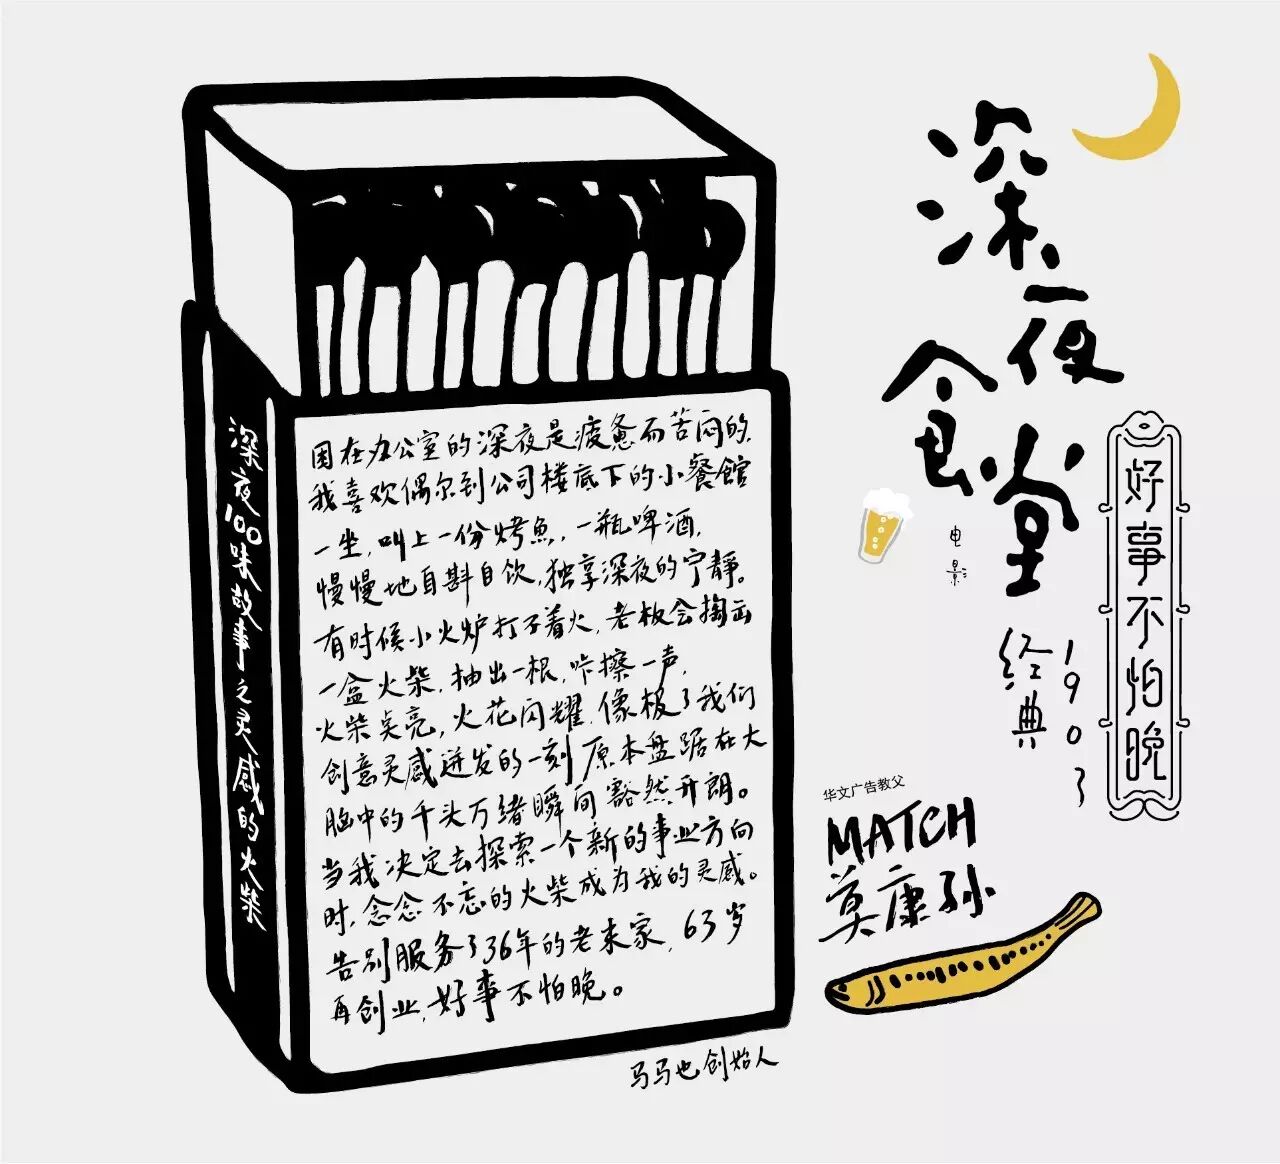 深夜食堂
电影
好事不怕晚
经典1903
华文广告教父
MATCH
莫康孙
深夜100味故事之灵感的火柴
困在办公室的深夜是疲惫而苦闷的,
我喜欢偶尔到公司楼底下的小餐館
一坐,叫上一份烤魚,一瓶啤酒,
慢慢地自斟自饮,独享深夜的宁静。
有时候小火炉打不着火,老板会掏出
一盒火柴,抽出一根,咔擦一声,
火柴点亮,火花闪耀,像极了我们
创意灵感迸发的一刻原本盘踞在大
脑中的千头万绪瞬间豁然开朗。
当我决定去探索一个新的事业方向
时,念念不忘的火柴成为我的灵感。
告别服务了36年的老东家,63岁
再创业,好事不怕晚。
马马也创始人